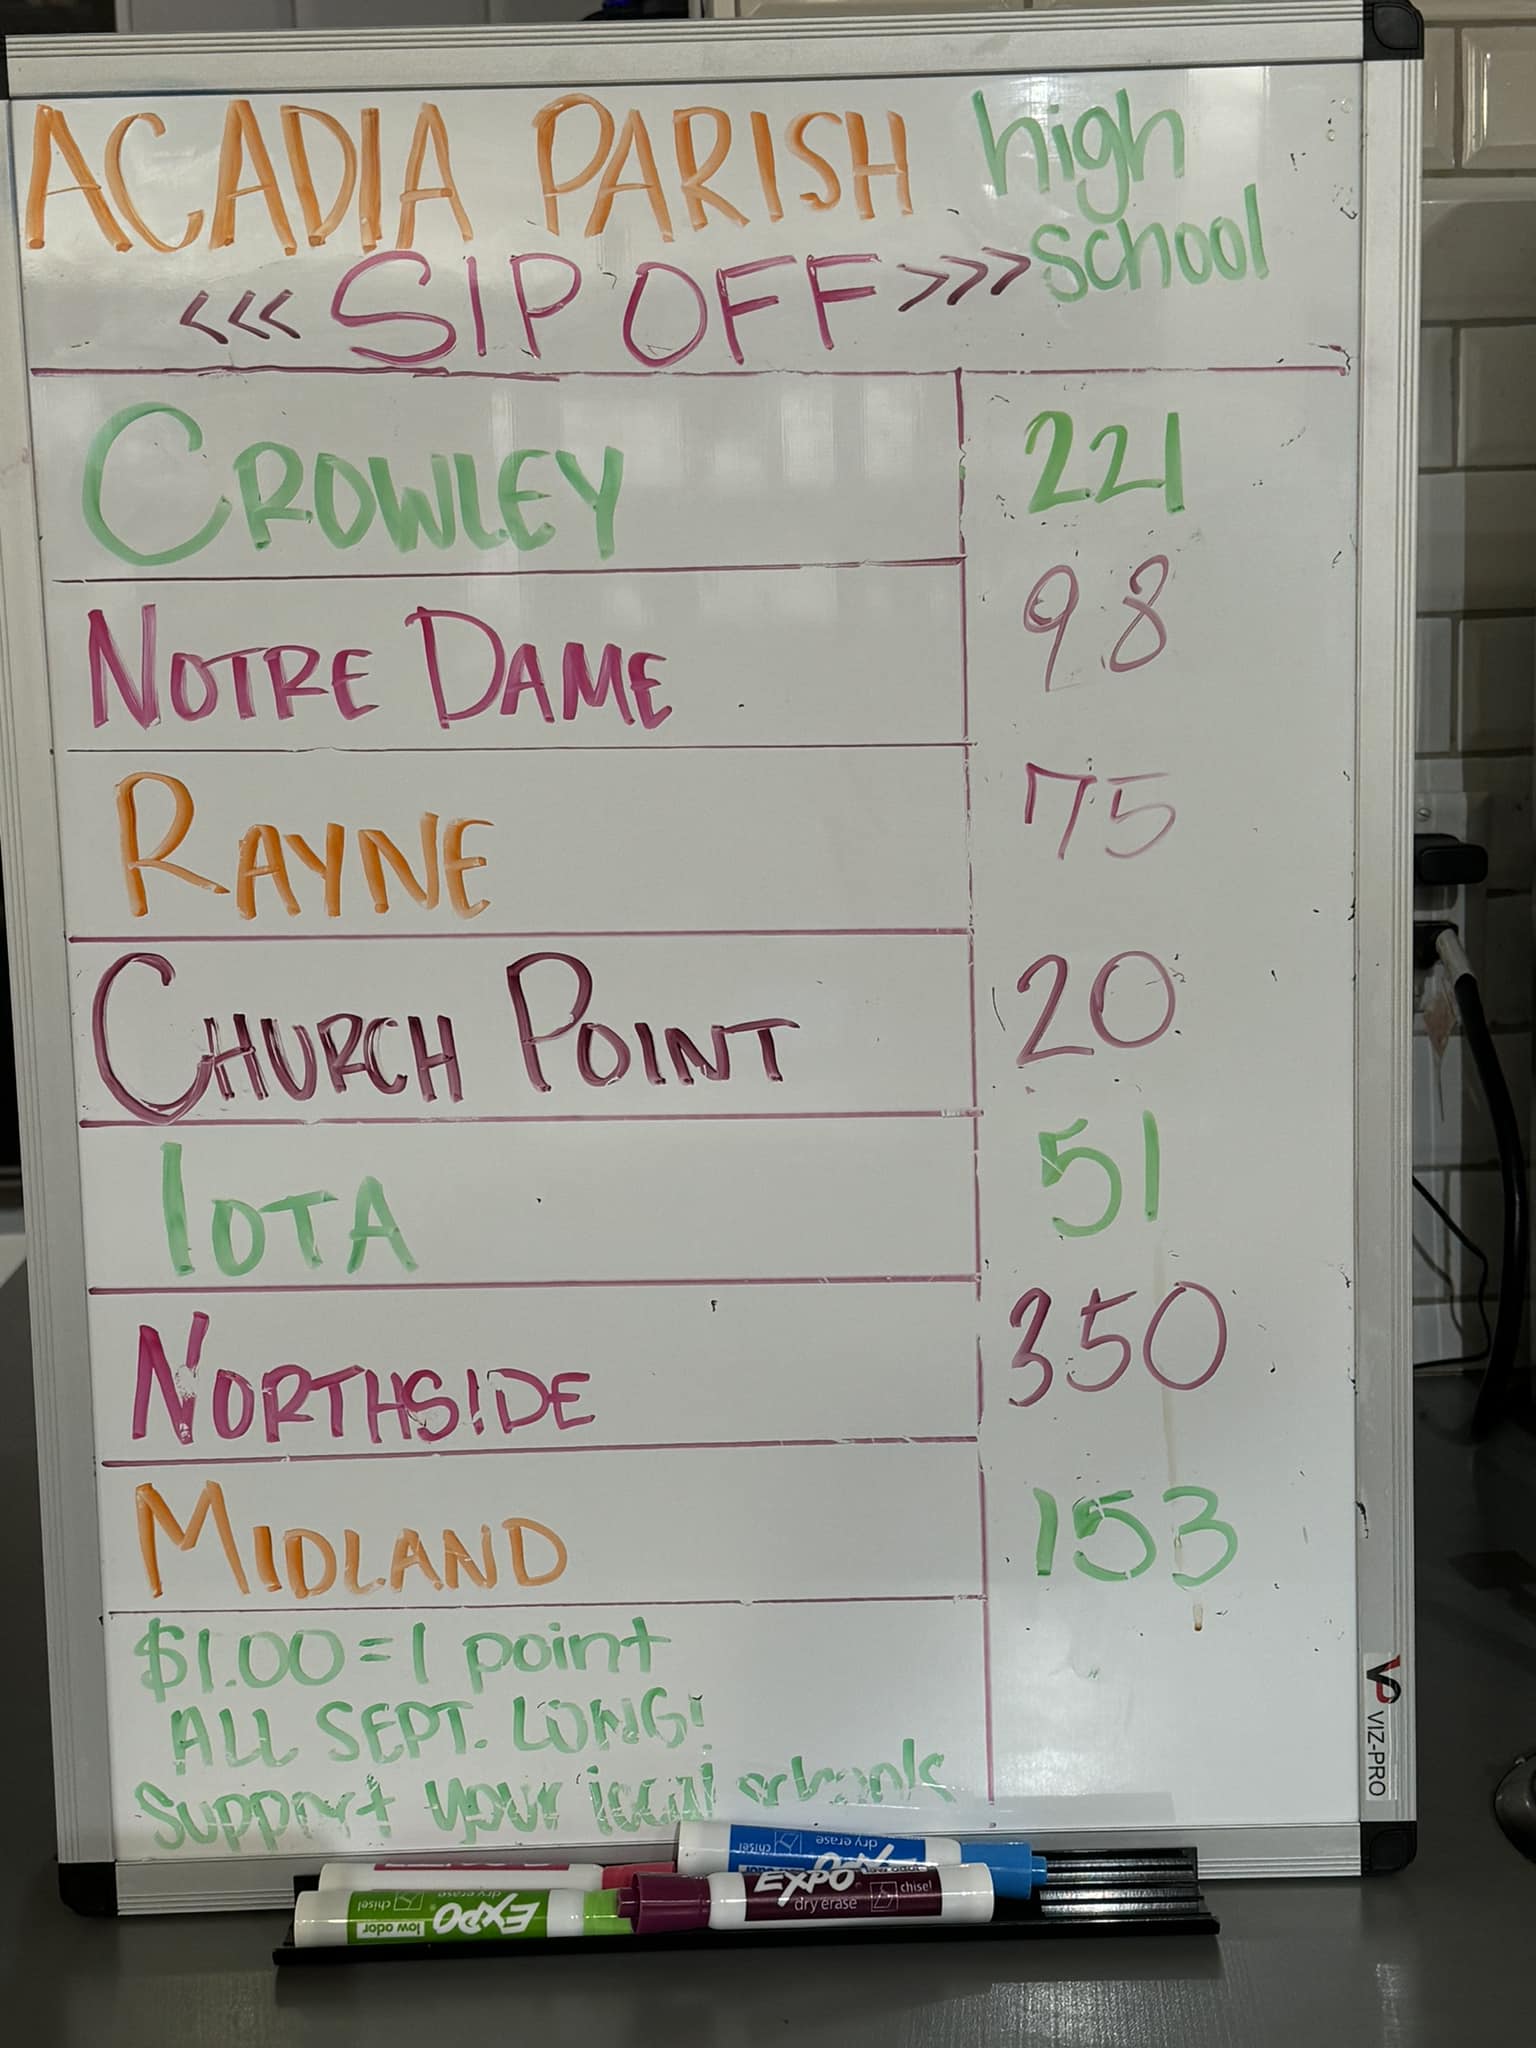 ACADIA PARISH high
<<< SIP OFF >>> school
CROWLEY 221
NOTRE DAME 98
RAYNE 75
CHURCH POINT 20
IOTA 51
NORTHSIDE 350
MIDLAND 153
$1.00 = 1 point
ALL SEPT. LONG!
Support your local schools
VP VIZ-PRO
chisel dry erase EXPO
EXPO dry erase chisel
low odor EXPO dry erase chisel